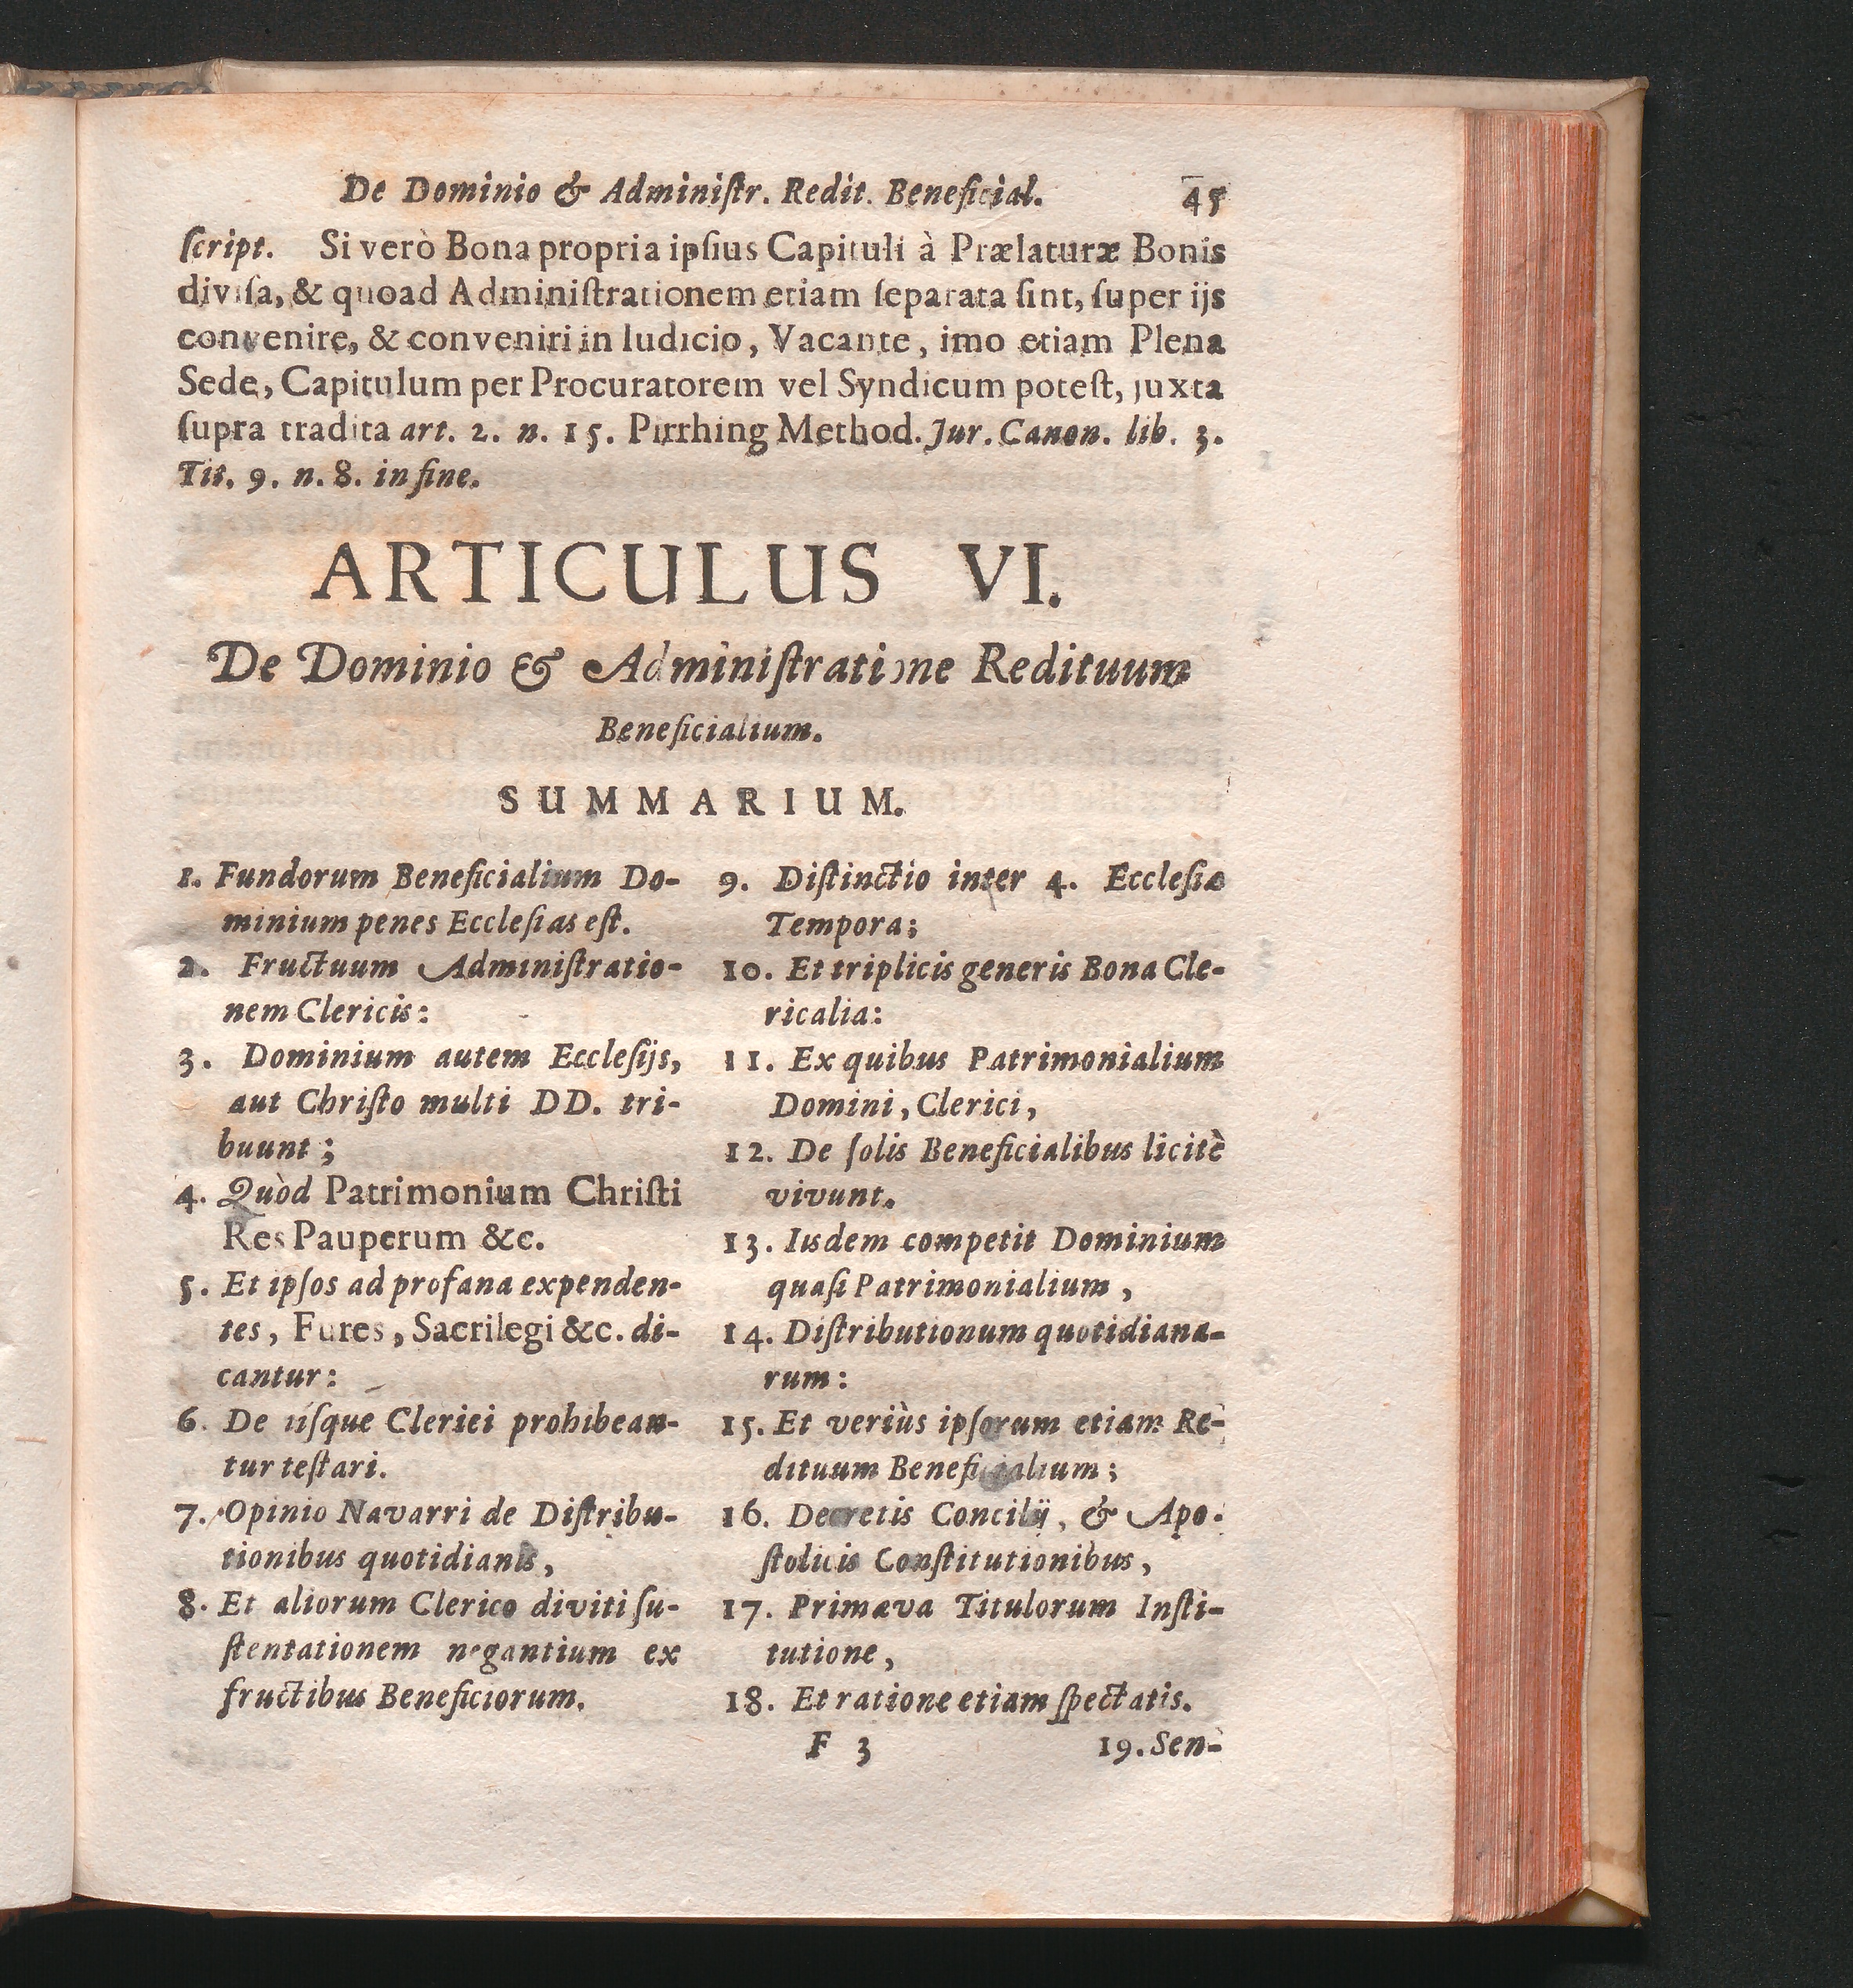 De Dominio & Adminiſtr. Redit. Beneficial. 45
ſcript. Si verò Bona propria ipſius Capituli à Prælaturæ Bonis
diviſa, & quoad Adminiſtrationem etiam ſeparata ſint, ſuper ijs
convenire, & conveniri in Iudicio, Vacante, imo etiam Plena
Sede, Capitulum per Procuratorem vel Syndicum poteſt, juxta
ſupra tradita art. 2. n. 15. Pirrhing Method. Jur. Canon. lib. 3.
Tit. 9. n. 8. in fine.
ARTICULUS VI.
De Dominio & Adminiſtratione Redituum
Beneficialium.
SUMMARIUM.
1. Fundorum Beneficialium Do-
minium penes Ecclesias eſt.
2. Fructuum Adminiſtratio-
nem Clericis:
3. Dominium autem Eccleſijs,
aut Chriſto multi DD. tri-
buunt;
4. Quòd Patrimonium Chriſti
Res Pauperum &c.
5. Et ipſos ad profana expenden-
tes, Fures, Sacrilegi &c. di-
cantur:
6. De iiſque Clerici prohibean-
tur teſtari.
7. Opinio Navarri de Diſtribu-
tionibus quotidianis,
8. Et aliorum Clerico diviti ſu-
ſtentationem negantium ex
fructibus Beneficiorum.
9. Diſtinctio inter 4. Eccleſiæ
Tempora;
10. Et triplicis generis Bona Cle-
ricalia:
11. Ex quibus Patrimonialium
Domini, Clerici,
12. De ſolis Beneficialibus licitè
vivunt.
13. Iisdem competit Dominium
quaſi Patrimonialium,
14. Diſtributionum quotidiana-
rum:
15. Et veriùs ipſorum etiam Re-
dituum Beneficialium;
16. Decretis Concilij, & Apo-
ſtolicis Conſtitutionibus,
17. Primæva Titulorum Inſti-
tutione,
18. Et ratione etiam ſpectatis.
F 3 19. Sen-